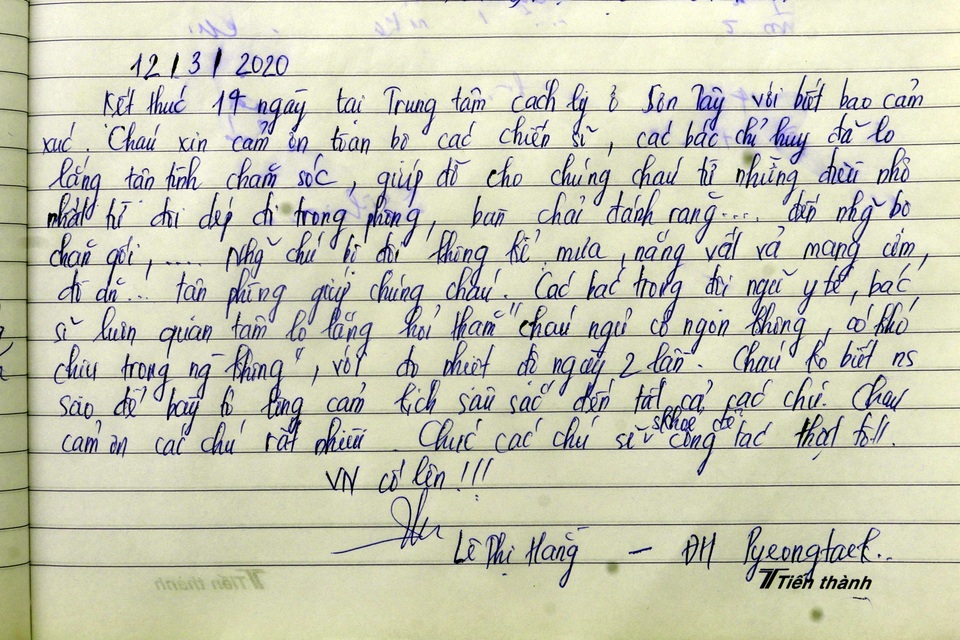 12/3/2020
Kết thúc 14 ngày tại Trung tâm cách ly ở Sơn Tây với biết bao cảm
xúc. Cháu xin cảm ơn toàn bộ các chiến sĩ, các bác chỉ huy đã lo
lắng tận tình chăm sóc, giúp đỡ cho chúng cháu từ những điều nhỏ
nhất từ đôi dép đi trong phòng, bàn chải đánh răng.... đến nhữ bộ
chăn gối, ..... Nhữ chú bộ đội không kể mưa, nắng vất vả mang cơm,
đồ ăn... tận phòng giúp chúng cháu. Các bác trong đội ngũ y tế, bác
sĩ luôn quan tâm lo lắng hỏi thăm "cháu ngủ có ngon không, có khó
chịu trong ng không", với đo nhiệt độ ngày 2 lần. Cháu ko biết ns
sao để bày tỏ lòng cảm kích sâu sắc đến tất cả các chú. Cháu
cảm ơn các chú rất nhiều. Chúc các chú sẽ skhoẻ để công tác thật tốt.
VN cố lên!!!
Lê Thị Hằng - ĐH Pyeongtaek..
Tiến thành
Tiến thành